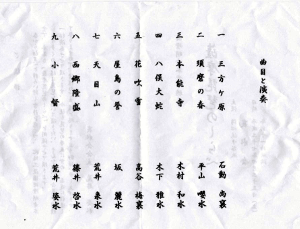 曲目と演奏
一 三方ヶ原 石動 尚襄
二 須磨の春 平山 嘤水
三 本能寺 木村 和水
四 八俣大蛇 木下 雅水
五 花吹雪 高谷 梅襄
六 屋島の誉 坂 麗水
七 天目山 荒井 泉水
八 西郷隆盛 藤井 啓水
九 小督 荒井 姿水